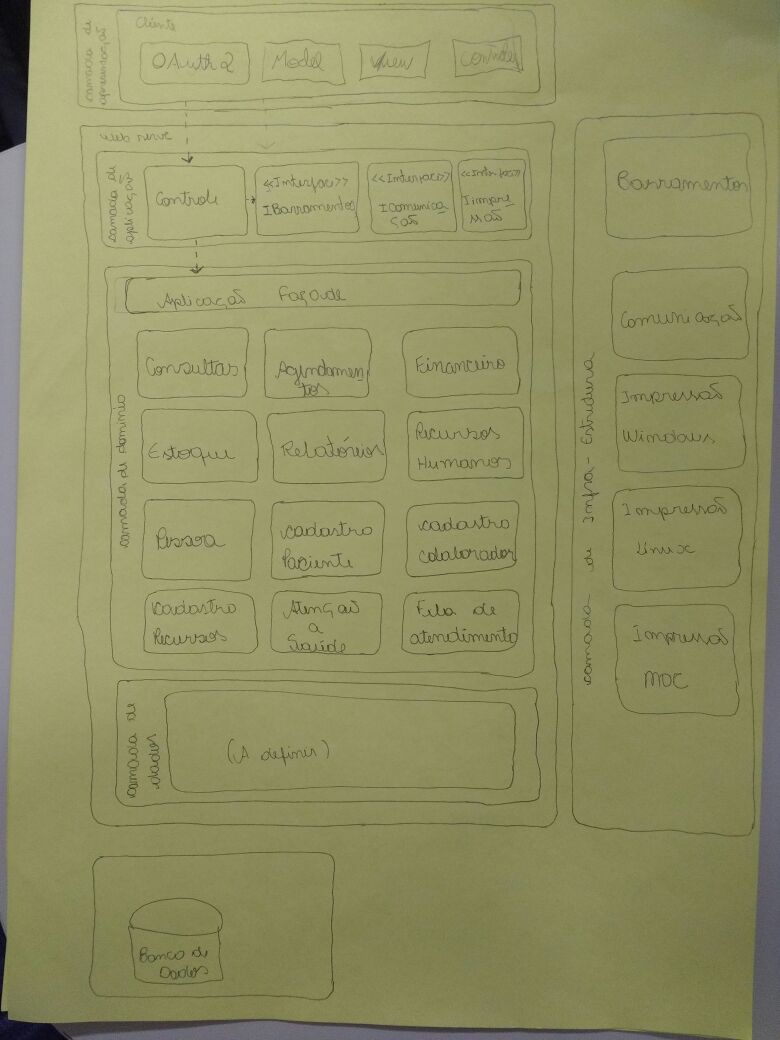 camada de
apresentação
Cliente
OAuth2
Model
View
Controller
web serve
camada de
aplicação
Controle
<<Interfac>>
IBarramentos
<<Interfaci>>
IComunica
ção
<<Interfac>>
Iimpre
ssão
Aplicação Façade
camada de domínio
Consultas
Agendamen
tos
Financeiro
Estoque
Relatórios
Recursos
Humanos
Pessoa
cadastro
Paciente
cadastro
colaborador
cadastro
Recursos
Atenção
a
Saúde
Fila de
atendimento
camada de
dados
(A definir)
camada de Infra-Estrutura
Barramentos
Comunicação
Impressão
Windows
Impressão
Linux
Impressão
MOC
Banco de
Dados